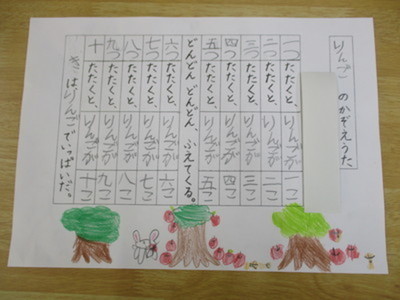 りんご のかぞえうた
一つ たたくと、りんごが 一こ
二つ たたくと、りんごが 二こ
三つ たたくと、りんごが 三こ
四つ たたくと、りんごが 四こ
五つ たたくと、りんごが 五こ
どんどん どんどん、ふえてくる。
六つ たたくと、りんごが 六こ
七つ たたくと、りんごが 七こ
八つ たたくと、りんごが 八こ
九つ たたくと、りんごが 九こ
十 たたくと、りんごが 十こ
きは、りんごでいっぱいだ。